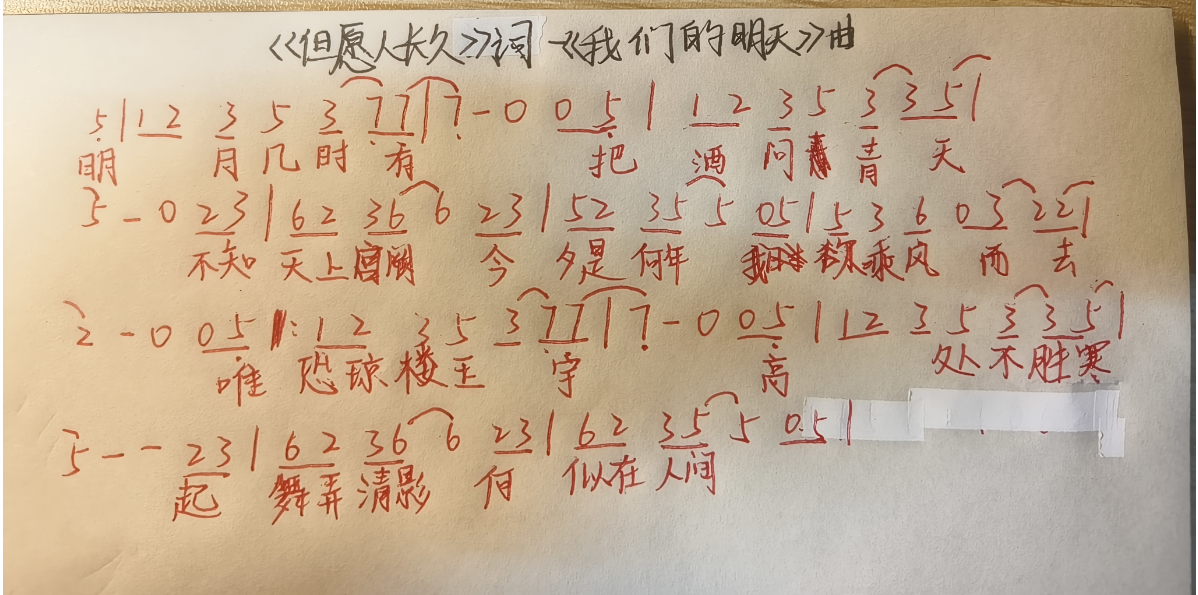 《但愿人长久》词 《我们的明天》曲
5|12 3 5 3 77|7 - 0 0 5| 12 3 5 3 3 5|
明 月 几 时 有 把 酒 问 青 天
5 - 0 23|62 36 6 23|52 35 5 05|5 3 6 0 3 22|
不知 天上宫阙 今 夕是 何年 我 欲乘风 而 去
2 - 0 05|: 12 3 5 3 77|7 - 0 05|12 3 5 3 3 5|
唯 恐琼楼玉 宇 高 处不胜寒
5 - - 23|62 36 6 23|62 35 5 05|
起 舞弄清影 何 似在人间